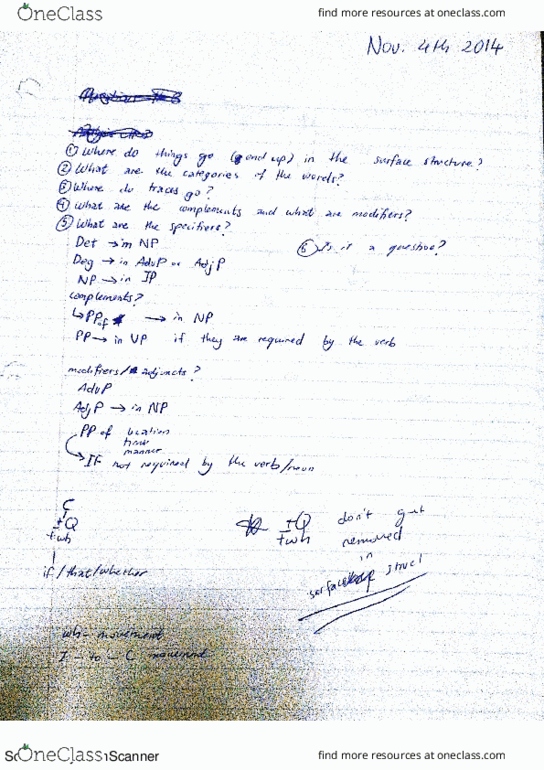 OneClass find more resources at oneclass.com
Nov. 4th 2014
① Where do things go (end up) in the surface structure?
② What are the categories of the words?
③ Where do traces go?
④ What are the complements and what are modifiers?
⑤ What are the specifiers?
Det → in NP ⑥ Is it a question?
Deg → in AdvP or AdjP
NP → in IP
complements?
↳ PP of → in NP
PP → in VP if they are required by the verb
modifiers / adjuncts?
AdvP
AdjP → in NP
PP of location
time
manner
→ If not required by the verb/noun
C
±Q ±Q don't get
+wh +wh removed
in
if/that/whether surface struct
wh- movement
I - to - C movement
OneClass Scanner find more resources at oneclass.com